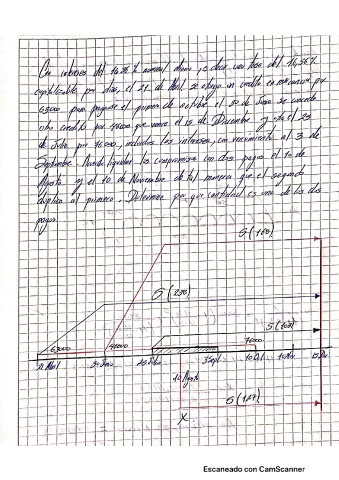 Con intereses del 14.56% nominal diario, es decir, una tasa del 14.56%
capitalizable por días, el 21 de Abril se otorga un crédito en mercancía por
63000 para pagarse el primero de octubre el 20 de Junio se concede
otro crédito por 48000 que vence el 15 de Diciembre y el 25
de Julio por 76000, incluidos los intereses, con vencimiento al 3 de
Septiembre. Puede liquidar los compromisos con dos pagos el 10 de
Agosto y el 10 de Noviembre de tal manera que el segundo
duplica al primero. Determine por que cantidad es uno de los dos
pagos
S(178)
S(238)
S(103)
63000
48000
76000
21 Abril
20 Junio
25 Julio
3 Sept
10 Oct
10 Nov
15 Dic
10 Agosto
S(127)
X
Escaneado con CamScanner